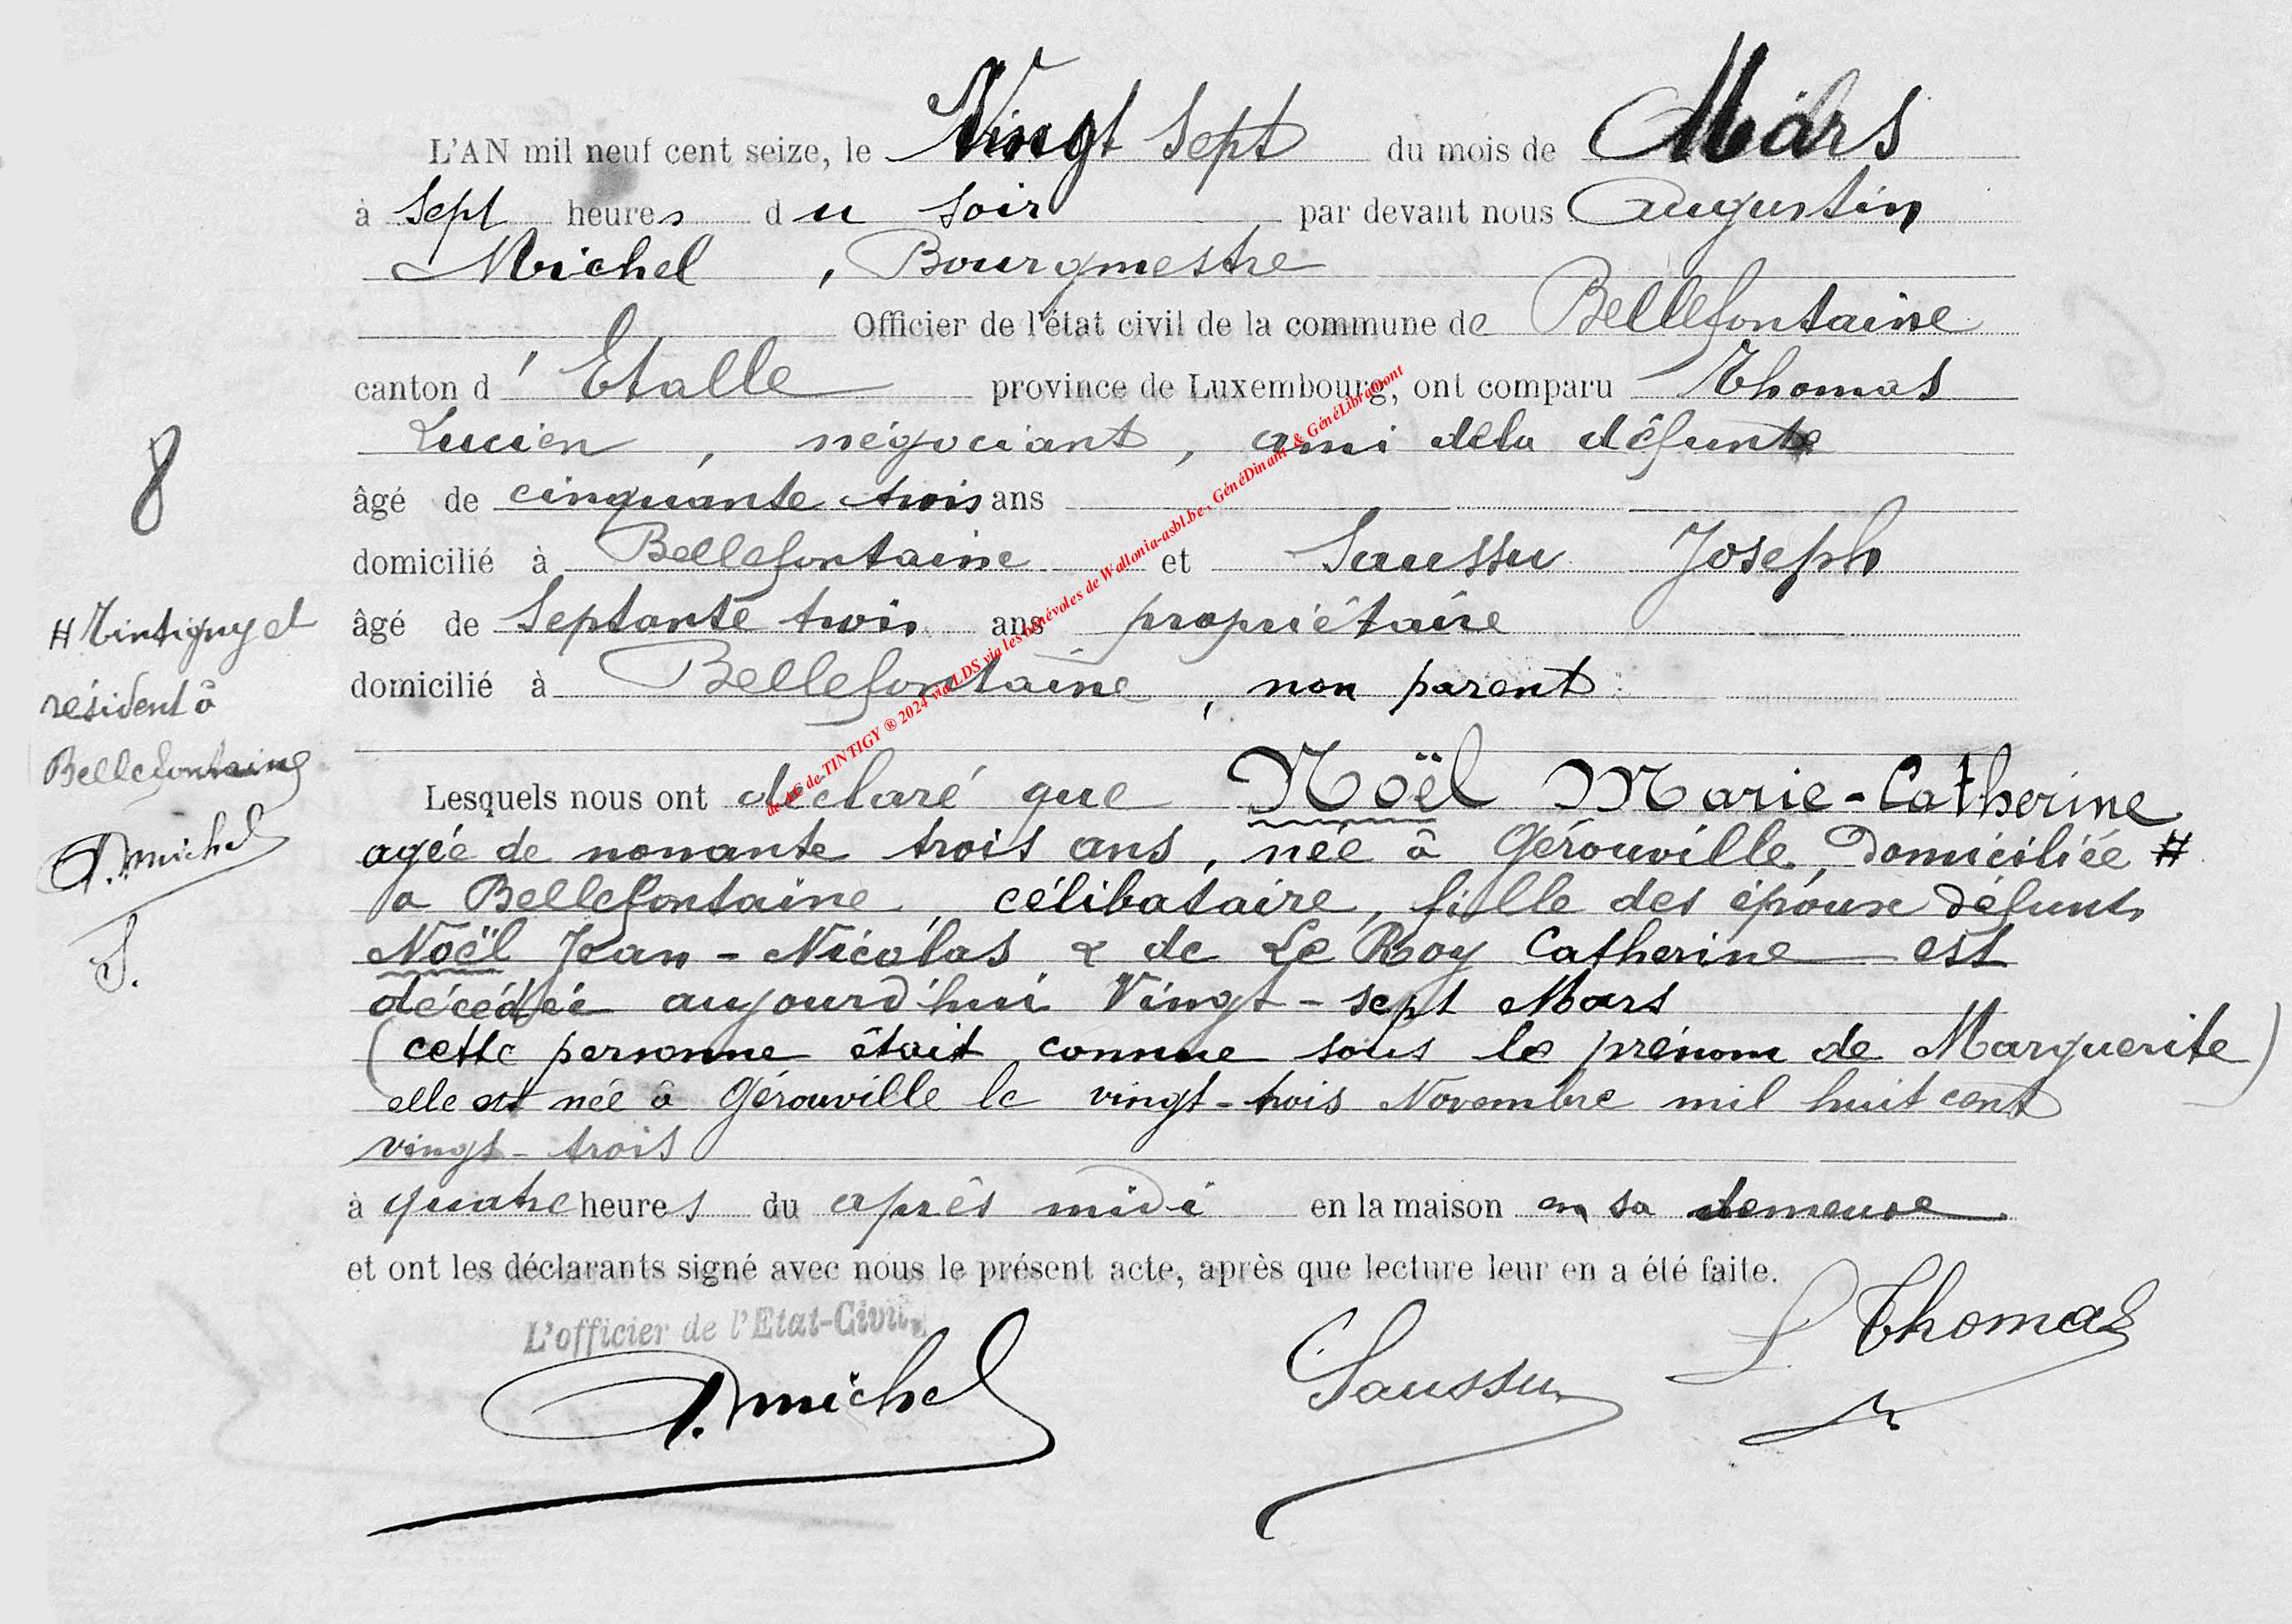 L'AN mil neuf cent seize, le Vingt sept du mois de Mars
à Sept heures du soir par devant nous Augustin
Michel, Bourgmestre
Officier de l'état civil de la commune de Bellefontaine
canton d'Etalle province de Luxembourg, ont comparu Thomas
Lucien, négociant, ami dela défunte
âgé de cinquante trois ans
domicilié à Bellefontaine et Saussu Joseph
âgé de Septante trois ans propriétaire
domicilié à Bellefontaine, non parent
8
# Tintigny et
résident à
Bellefontaine
A. Michel
S.
Lesquels nous ont déclaré que Noël Marie-Catherine
agée de nonante trois ans, née à Gérouville, Domiciliée #
a Bellefontaine, célibataire, fille des époux défunts
Noël Jean-Nicolas & de Le Roy Catherine est
décédée aujourd'hui Vingt-sept Mars
(cette personne était connue sous le prénom de Marguerite)
elle est née à Gérouville le vingt-trois Novembre mil huit cent
vingt-trois
à quatre heures du après midi en la maison en sa demeure
et ont les déclarants signé avec nous le présent acte, après que lecture leur en a été faite.
L'officier de l'Etat-Civil,
A. Michel Saussu L. Thomas
de AC de TINTIGY ® 2024 via LDS via les bénévoles de Wallonia-asbl.be, GénéDinant & GénéLibramont